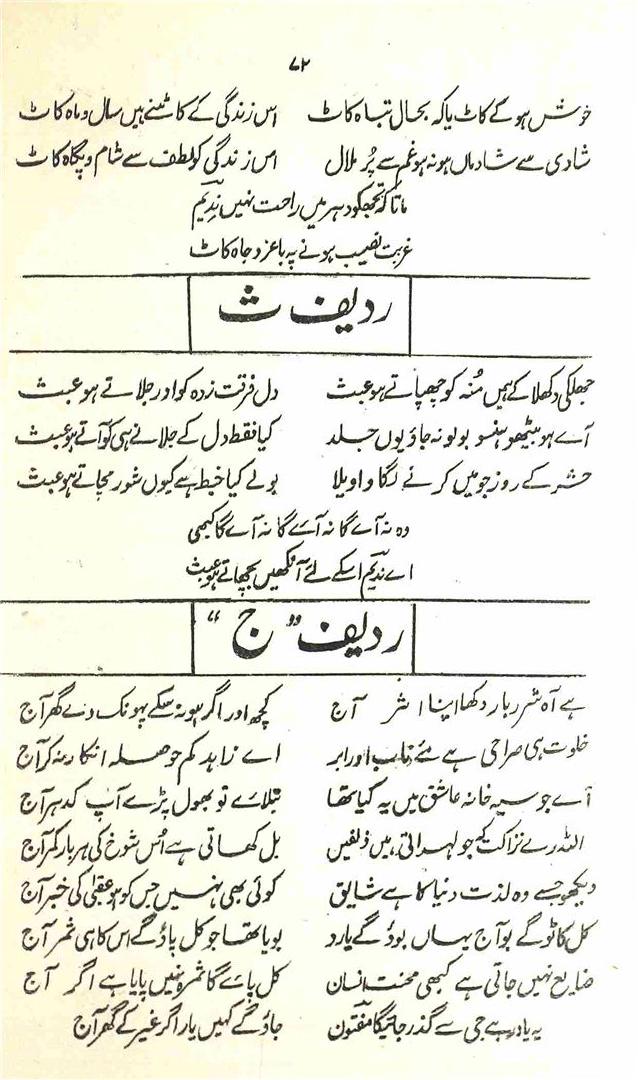 ۷۲
خوش ہو کے کاٹ یا کہ بحال تباہ کاٹ اس زندگی کے کاٹنے ہیں سال و ماہ کاٹ
شادی سے شادماں ہو نہ ہو غم سے پُر ملال اس زندگی کو لطف سے شام و پگاہ کاٹ
مانا کہ تجھکو دہر میں راحت نہیں ندیم
غربت نصیب ہونے پہ باعز و جاہ کاٹ
ردیف ث
جھلکی دکھلا کے ہمیں مُنہ کو چھپاتے ہو عبث دل فرقت زدہ کو اور جلاتے ہو عبث
آے ہو بیٹھو ہنسو بولو نہ جاؤ یوں جلد کیا فقط دل کے جلانے ہی کو آتے ہو عبث
حشر کے روز جو میں کرنے لگا واویلا بولے کیا خبط ہے کیوں شور مچاتے ہو عبث
وہ نہ آے گا نہ آئے گا نہ آے گا کبھی
اے ندیم اسکے لئے آنکھیں بچھاتے ہو عبث
ردیف "ج"
ہے آہ شرر بار دکھا اپنا اثر آج کچھ اور اگر ہو نہ سکے پھونک دے گھر آج
خلوت ہی صراحی ہے مئے ناب اور ابر اے زاہد کم حوصلہ انکار نہ کر آج
آے جو سیہ خانہ عاشق میں یہ کیا تھا بتلائے تو بھول پڑے آپ کدہر آج
اللہ رے نزاکت کہ جو لہراتی ہیں زلفیں بل کھاتی ہے اُس شوخ کی ہر بار کمر آج
دیکھو جسے وہ لذت دنیا کا ہے شایق کوئی بھی نہیں جس کو ہو عقبیٰ کی خبر آج
کل کاٹو گے بو آج یہاں بوؤ گے یارد بویا تھا جو کل پاؤ گے اس کا ہی ثمر آج
ضایع نہیں جاتی ہے کبھی محنت انسان کل پائے گا ثمرہ نہیں پایا ہے اگر آج
یہ یاد رہے جی سے گذر جائیگا مفتون جاؤ گے کہیں یار اگر غیر کے گھر آج